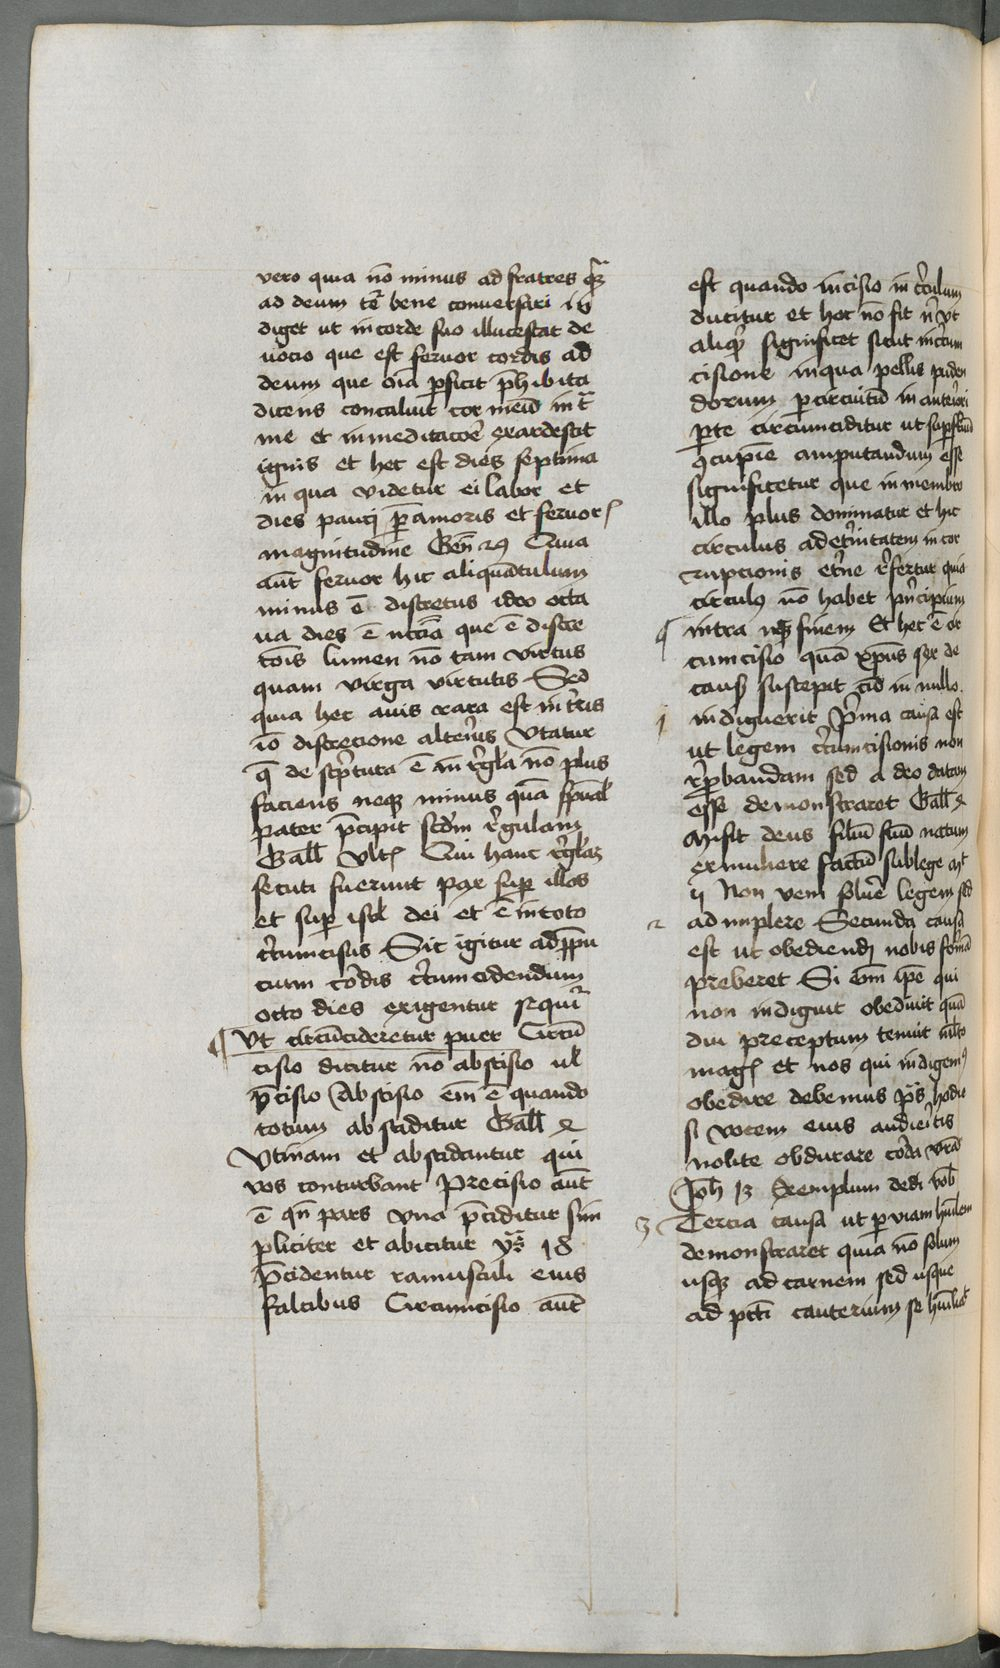 vero quia nō minus ad fratres
ad deum bene conversari in
diget ut in corde suo illucescat de
uōcio que est fervor cordis ad
deum que oīa ꝑficit ꝓhibita
dicens concaluit cor meū int̄
me et in meditacōe exardescit
ignis et hec est dies septima
in qua videtur ei labor et
dies pauci amoris et fervor
magnitudine Geñ 29 Quia
aūt fervor hic aliquātulum
minus ē discretus ideo octa
ua dies ē que ē discre
tōis lumen nō tam virtus
quam virga virtutis Sed
quia hec auis rara est in tr̄is
iō discrecione alterius utatur
de sc̄ptura ē in rēgla nō plus
faciens neqꝫ minus quā
pater p̄cipit scd̄m rēgulam
Gall ult Qui hanc rēglaꝫ
secuti fuerunt pax suꝑ illos
et suꝑ isrl dei et ē in toto
circumcisus Sic igitur ad
cium cordis circumcidendum
octo dies exigentur
Ut circūcideretur puer Circū
cisio dicitur nō abscisio ul
p̄cisio Abscisio em̄ ē quando
totum abscidītur Gall
Utinam et abscidantur qui
vos conturbant Precisio aūt
ē qn̄ pars una p̄ciditur sim
pliciter et abicitur ys 18
p̄cidentur ramusculi eius
falcibus Circumcisio aūt
est quando incisio in circulum
ducitur et hoc nō fit ut
aliqͥd significet sicut in circum
cisione in qua pellis puden
dorum ꝑ circuitū in anteriori
ꝑte circumciditur ut
ꝯcupie amputandum esse
significetur que in membro
illo plus dominatur et hic
circulus ad eternitatem incor
rupcionis refertur quia
circulus nō habet principium
intra neqꝫ finem Et hec ē cir
cumcisio quā xp̄us sex de
causis suscepit in nullo
1 indiguerit Prima causa est
ut legem circumcisionis non
reprobandam sed a deo datam
esse demonstraret Gall
Misit deus filiū suū natum
ex muliere factū sub lege
ij Non veni soluere legem sed
2 adimplere Secunda causa
est ut obediendi nobis formā
preberet Si em̄ ipe qui
non indiguit obediuit
dui preceptum tenuit
magis et nos qui indigemꝰ
obedire debemus ps hodie
si vocem eius audieritis
nolite obdurare corda vrā
Joh 13 Exemplum dedi vob
3 Tercia causa ut ꝑ viam
demonstraret quia nō solum
usqꝫ ad carnem sed usque
ad pcti cauterium se